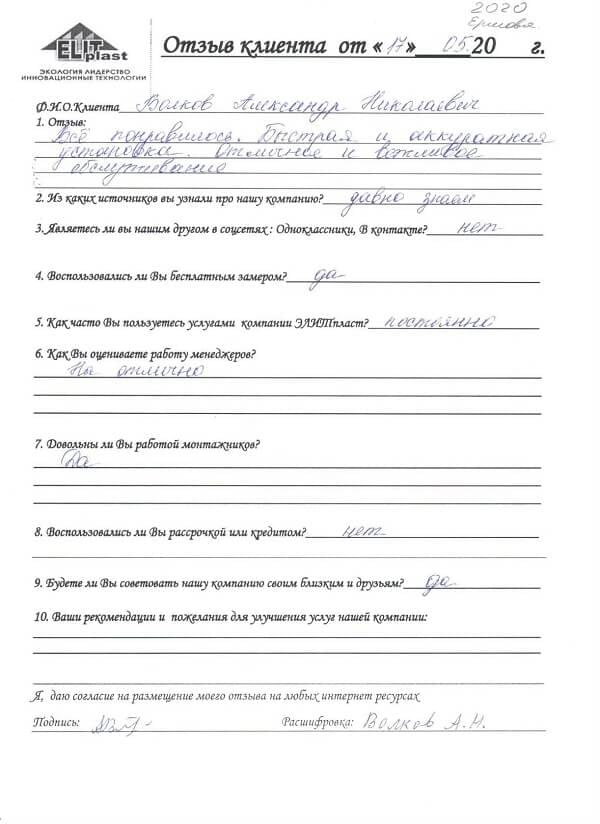 2020
ELIT
plast
ЭКОЛОГИЯ ЛИДЕРСТВО
ИННОВАЦИОННЫЕ ТЕХНОЛОГИИ
Отзыв клиента от «17» 05.20 г.
Ф.И.О.Клиента Волков Александр Николаевич
1. Отзыв:
Всё понравилось. Быстрая и аккуратная
установка. Отличное и вежливое
обслуживание
2. Из каких источников вы узнали про нашу компанию? давно знаем
3. Являетесь ли вы нашим другом в соцсетях : Одноклассники, В контакте? нет
4. Воспользовались ли Вы бесплатным замером? да
5. Как часто Вы пользуетесь услугами компании ЭЛИТпласт? постоянно
6. Как Вы оцениваете работу менеджеров?
На отлично
7. Довольны ли Вы работой монтажников?
Да
8. Воспользовались ли Вы рассрочкой или кредитом? нет
9. Будете ли Вы советовать нашу компанию своим близким и друзьям? да
10. Ваши рекомендации и пожелания для улучшения услуг нашей компании:
Я, даю согласие на размещение моего отзыва на любых интернет ресурсах
Подпись: Расшифровка: Волков А.Н.